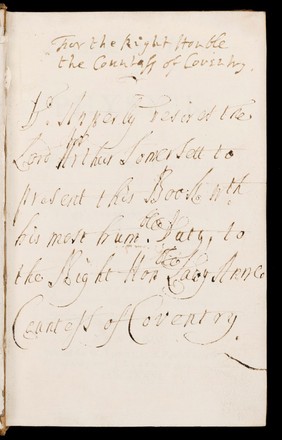 For the Right Honble
the Countess of Coventry.
Dr. Anperly desires the
Lord Arthur Somersett to
present this Book wth
his most humble Duty, to
the Right Honble Lady Anne
Countess of Coventry.